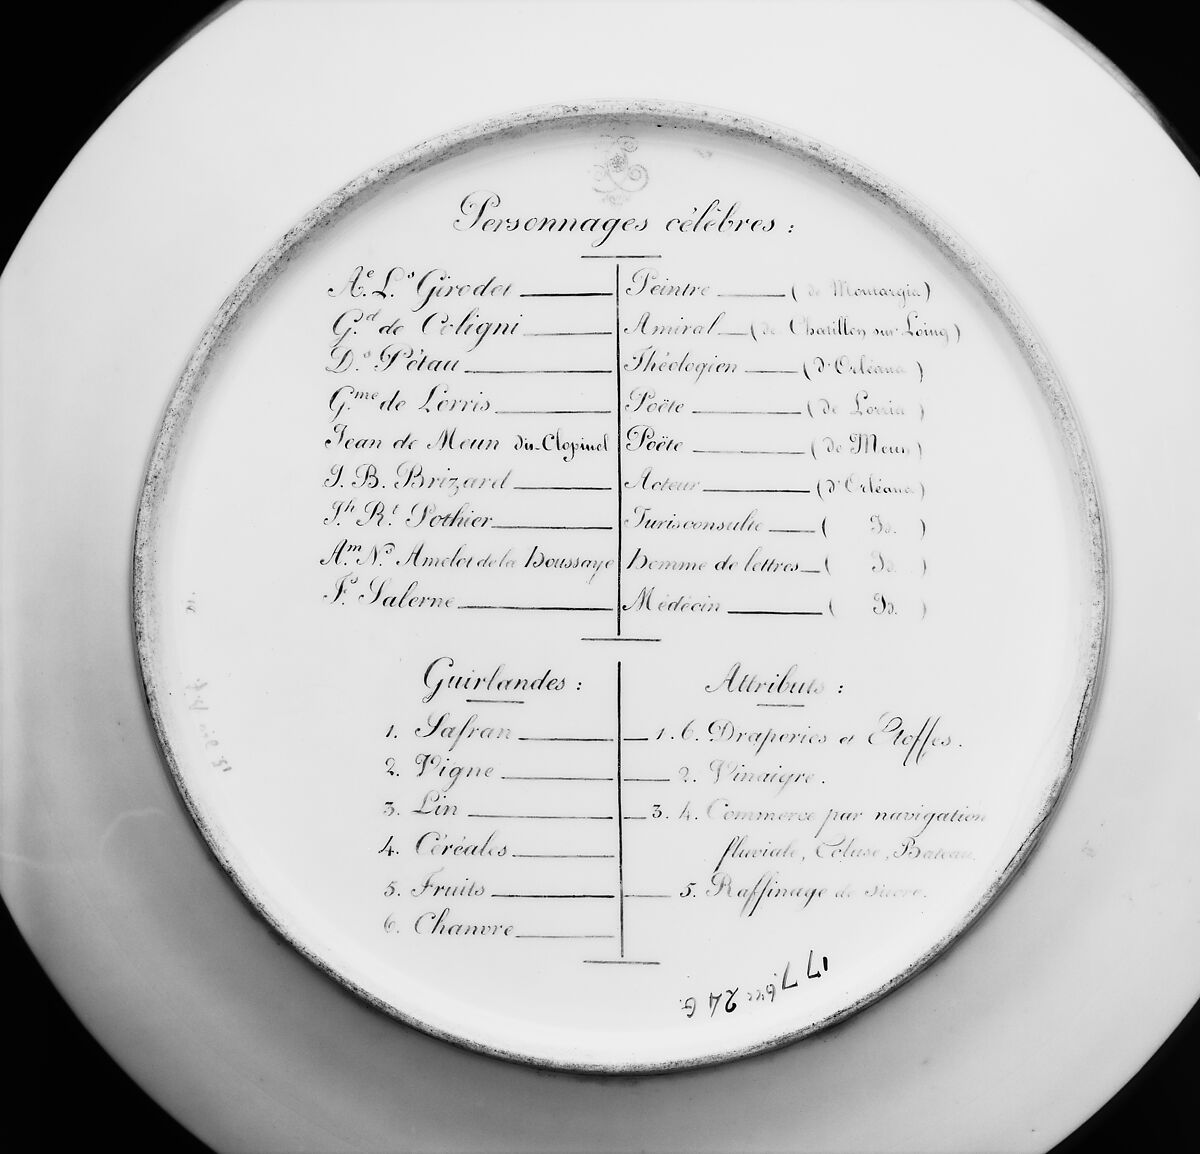 Personnages célèbres :
Ae. L.s Girodet — Peintre — ( de Montargis )
G.d de Coligni — Amiral — ( de Chatillon sur Loing )
D.s Pétau — Théologien — ( d'Orléans )
G.me de Lorris — Poëte — ( de Lorris )
Jean de Meun dit Clopinel Poëte — ( de Meun )
J. B. Brizard — Acteur — ( d'Orléans )
J.h R.t Pothier — Jurisconsulte — ( Id. )
A.m N.s Amelot de la Houssaye Homme de lettres — ( Id. )
F.s Salerne — Médécin — ( Id. )
Guirlandes : Attributs :
1. Safran — 1. 6. Draperies et Etoffes.
2. Vigne — 2. Vinaigre.
3. Lin — 3. 4. Commerce par navigation
4. Céréales — fluviale, Ecluse, Bateau.
5. Fruits — 5. Raffinage de sucre.
6. Chanvre
17 7bre 24 G.